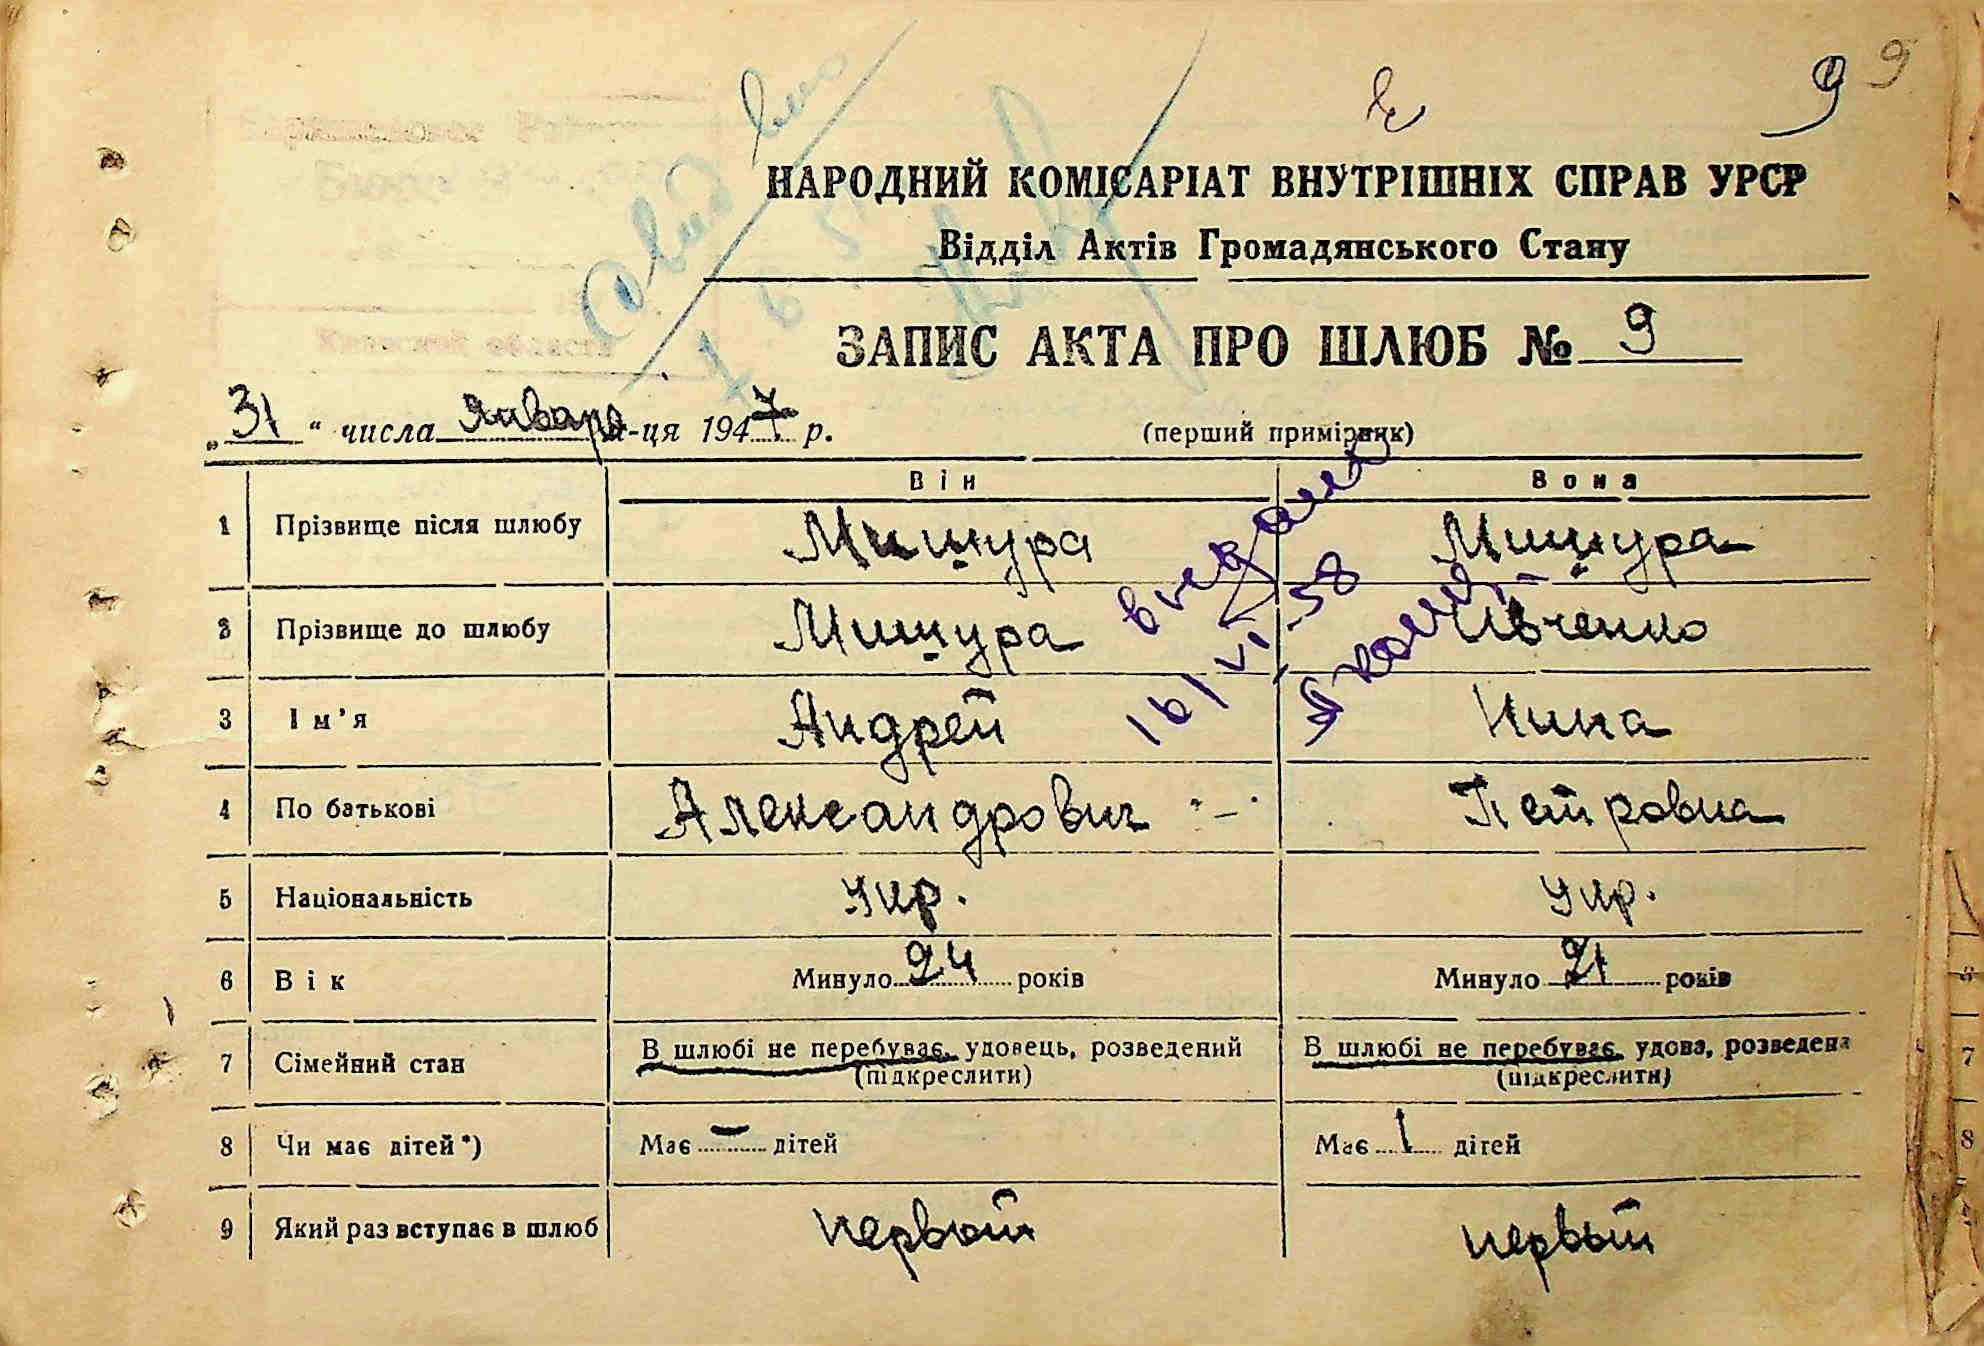 9 9
НАРОДНИЙ КОМІСАРІАТ ВНУТРІШНІХ СПРАВ УРСР
Відділ Актів Громадянського Стану
ЗАПИС АКТА ПРО ШЛЮБ № 9
„31“ числа января м-ця 1947 р.
(перший примірник)
Він Вона
1 Прізвище після шлюбу Мишура Мишура
2 Прізвище до шлюбу Мишура Ивченко
16/VI-58
3 Ім'я Андрей Нина
4 По батькові Александрович Петровна
5 Національність укр. укр.
6 Вік Минуло 24 років Минуло 21 років
7 Сімейний стан В шлюбі не перебуває, удовець, розведений В шлюбі не перебуває, удова, розведена
(підкреслити) (підкреслити)
8 Чи має дітей*) Має — дітей Має 1 дітей
9 Який раз вступає в шлюб первый первый